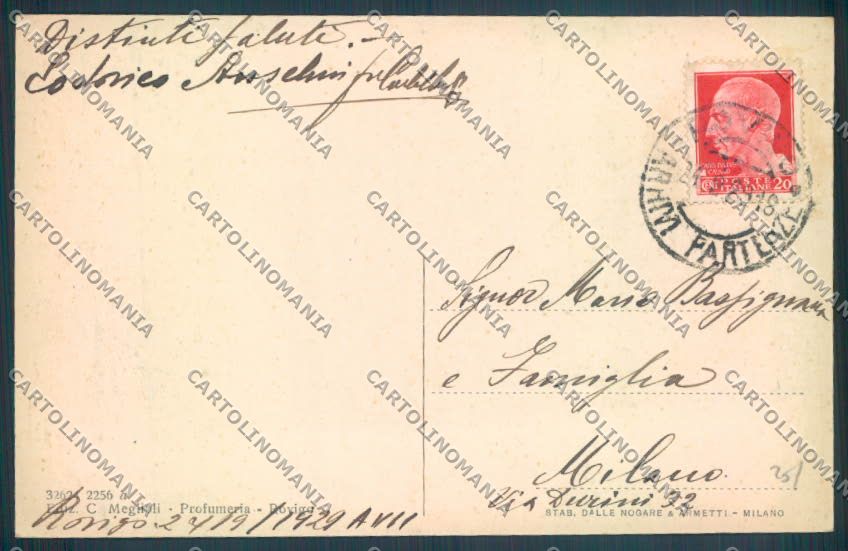 Distinti saluti. -
Lodovico Anselmi
GIVLIO CESARE
CENT POSTE ITALIANE 20
ARRIVI PARTENZE
Signor Mario Bassignana
e Famiglia
Milano
Via Durini 32
2256 a
Ediz. C Meglioli - Profumeria - Rovigo
STAB. DALLE NOGARE & ARMETTI - MILANO
Rovigo 24/9/1929 A VII
CARTOLINOMANIA